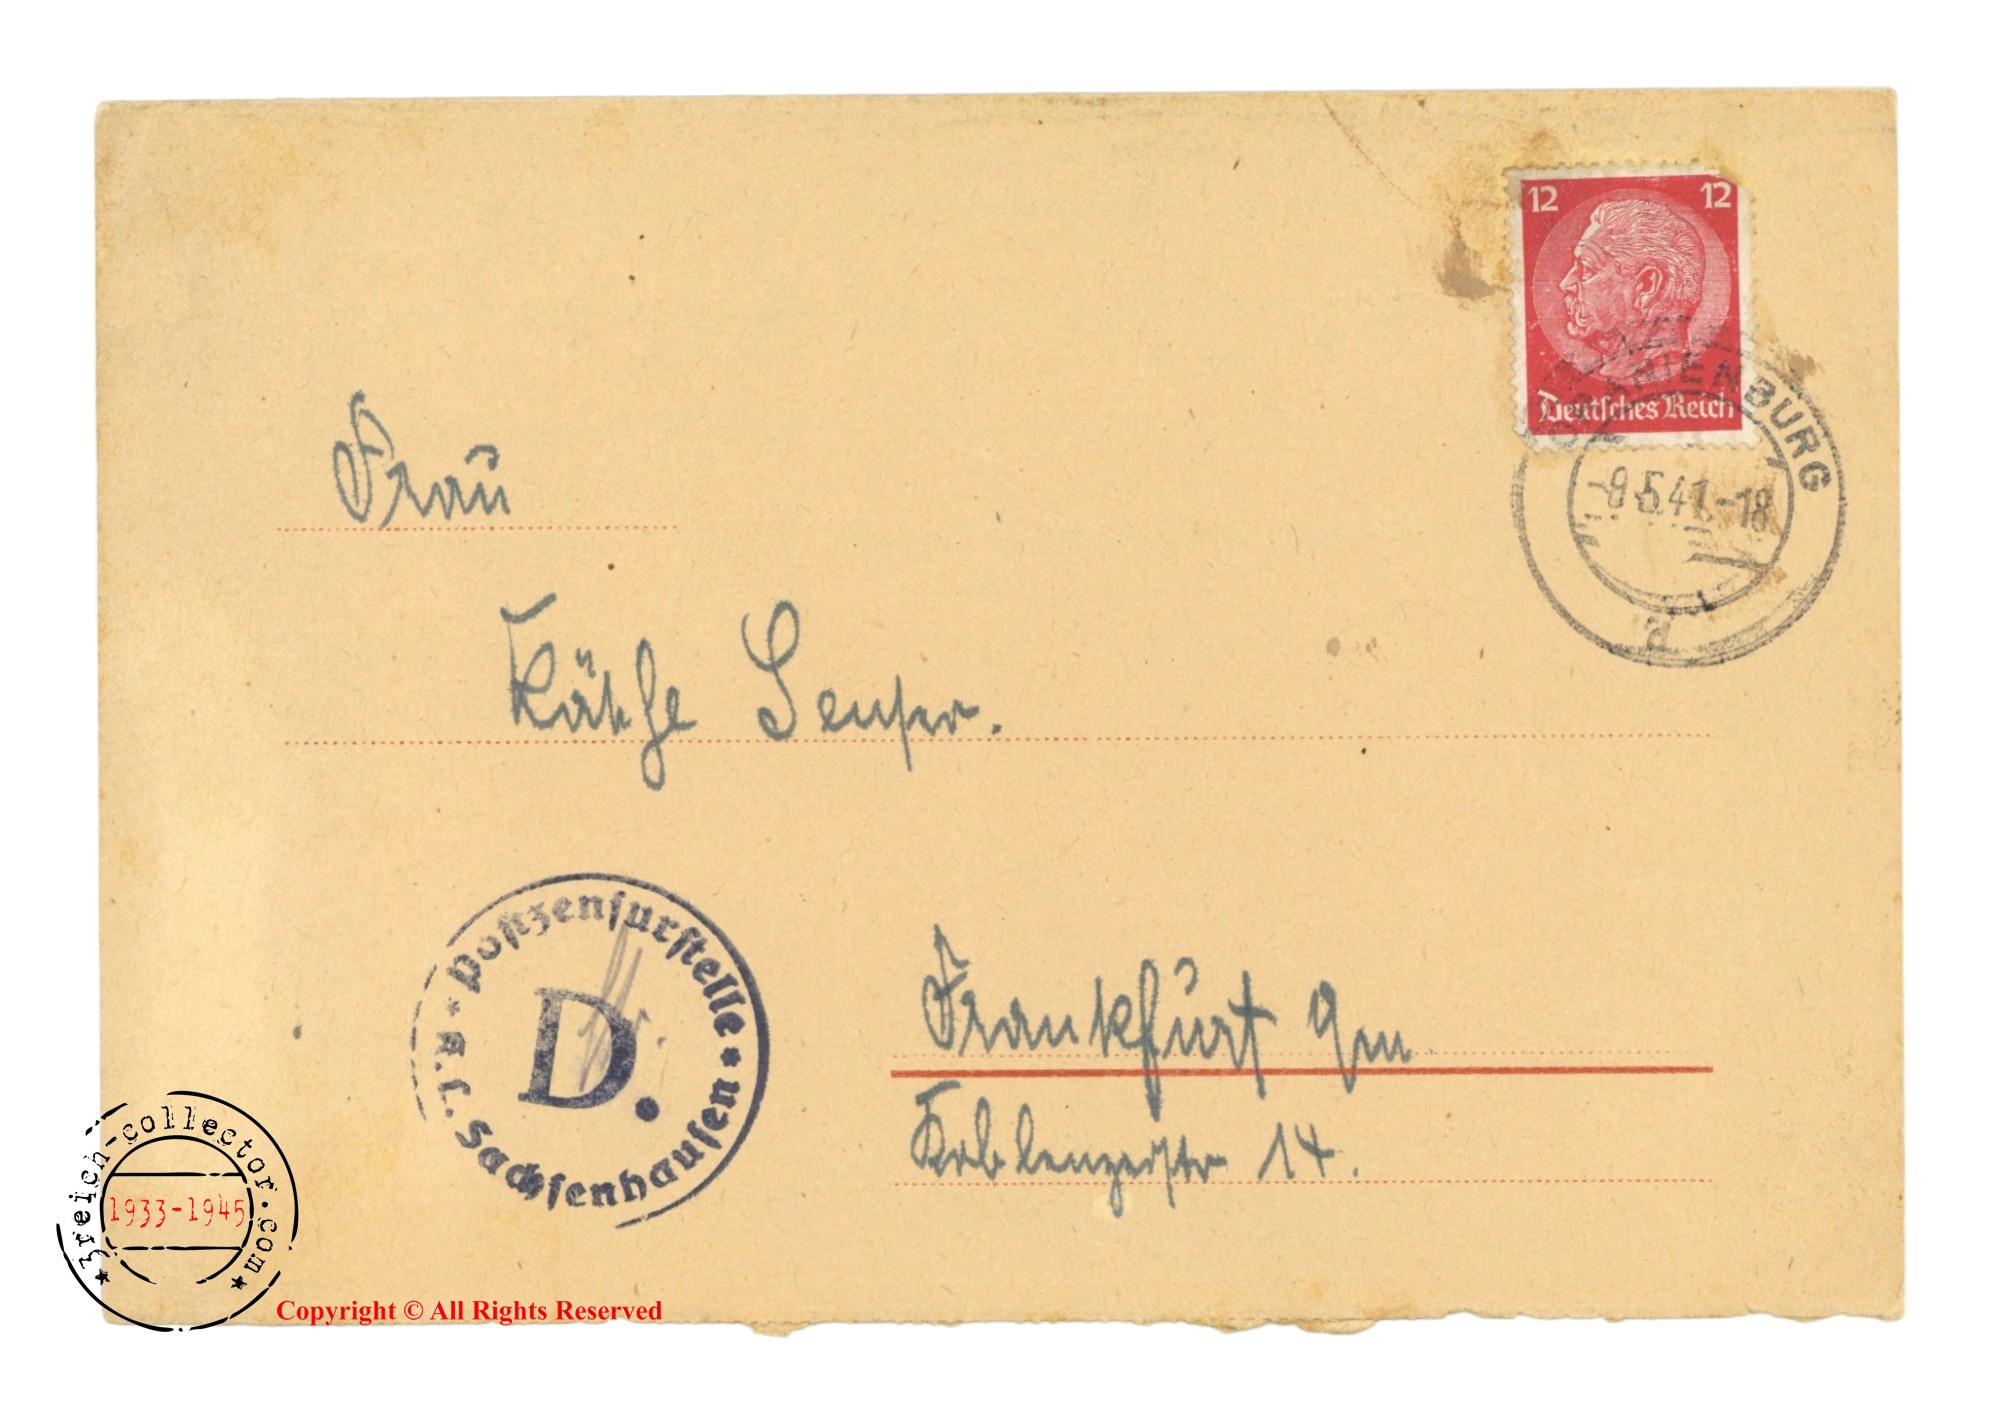 12 12
Deutsches Reich
ORANIENBURG
-9.5.41.-18
a
Frau
Käthe
Postzensurstelle
D.
K.L. Sachsenhausen
Frankfurt a/m
Koblenzerstr 14.
3reich-collector.com
1933-1945
Copyright © All Rights Reserved